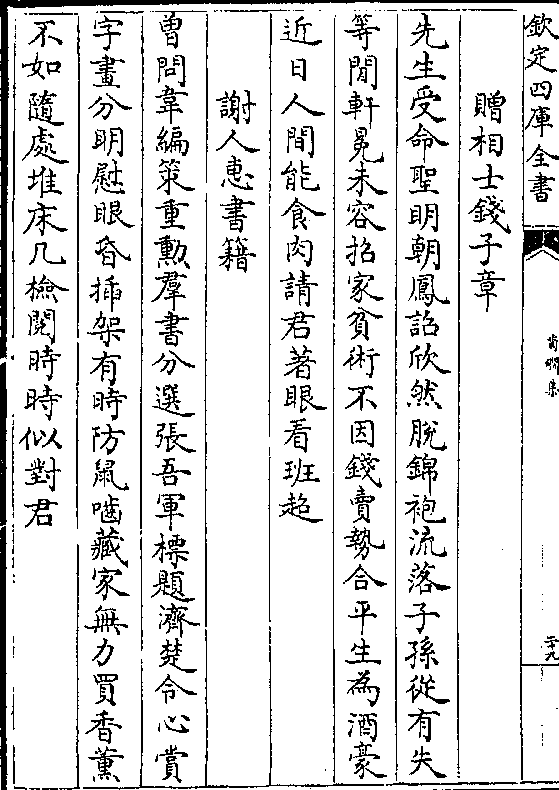 欽定四庫全書
贈相士錢子章
先生受命聖明朝鳳詔欣然脫錦袍流落子孫從有失
等閒軒冕未容招家貧術不因錢賣勢合平生為酒豪
近日人間能食肉請君著眼看班超
謝人惠書籍
曽問韋編策重勲羣書分選張吾軍標題濟楚令心賞
字畫分明慰眼昏揷架有時防鼠嚙藏家無力買香薰
不如隨處堆床几檢閱時時似對君
二十九